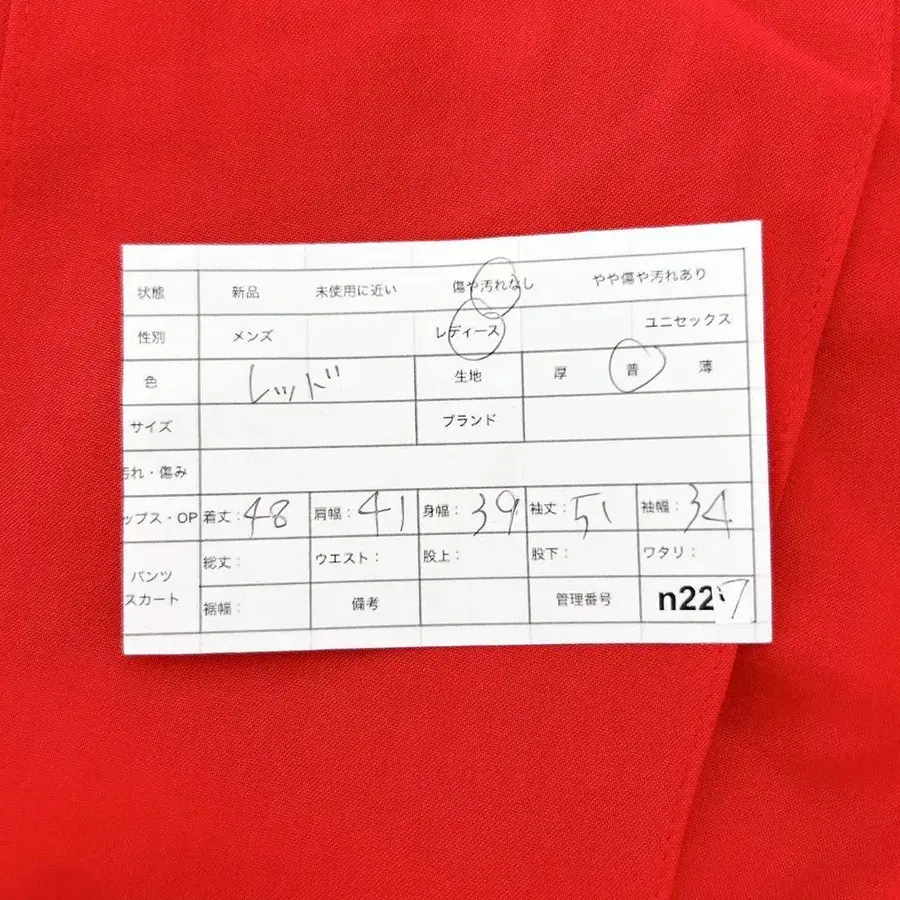 状態 新品 未使用に近い 傷や汚れなし やや傷や汚れあり
性別 メンズ レディース ユニセックス
色 レッド 生地 厚 普 薄
サイズ ブランド
汚れ・傷み
ップス・OP 着丈:48 肩幅:41 身幅:39 袖丈:51 袖幅:34
パンツ スカート 総丈: ウエスト: 股上: 股下: ワタリ:
裾幅: 備考 管理番号 n227